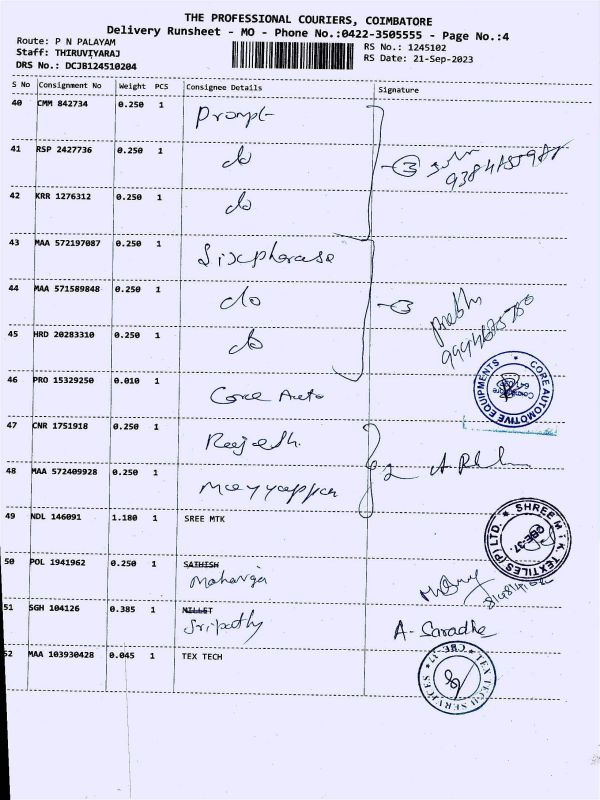 THE PROFESSIONAL COURIERS, COIMBATORE
Delivery Runsheet - MO - Phone No.:0422-3505555 - Page No.:4
Route: P N PALAYAM
RS No.: 1245102
Staff: THIRUVIYARAJ
RS Date: 21-Sep-2023
DRS No.: DCJB124510204
S No Consignment No Weight PCS Consignee Details Signature
40 CMM 842734 0.250 1 Prompt
41 RSP 2427736 0.250 1 do
3
42 KRR 1276312 0.250 1 do
43 MAA 572197087 0.250 1 Sixpharase
44 MAA 571589848 0.250 1 do
3 prabhu
45 HRD 20283310 0.250 1 do
46 PRO 15329250 0.010 1 Core Auto
CORE AUTOMOTIVE EQUIPMENTS
47 CNR 1751918 0.250 1 Rajesh.
2
48 MAA 572409928 0.250 1 Mayyappan
49 NDL 146091 1.180 1 SREE MTK
SHREE M.T.K. TEXTILES (P) LTD. CBE-37
50 POL 1941962 0.250 1 SATHISH
Maharaja
51 SGH 104126 0.385 1 MILLET
Sripathy A- Saradha
52 MAA 103930428 0.045 1 TEX TECH
TEX TECH SERVICES CBE-37